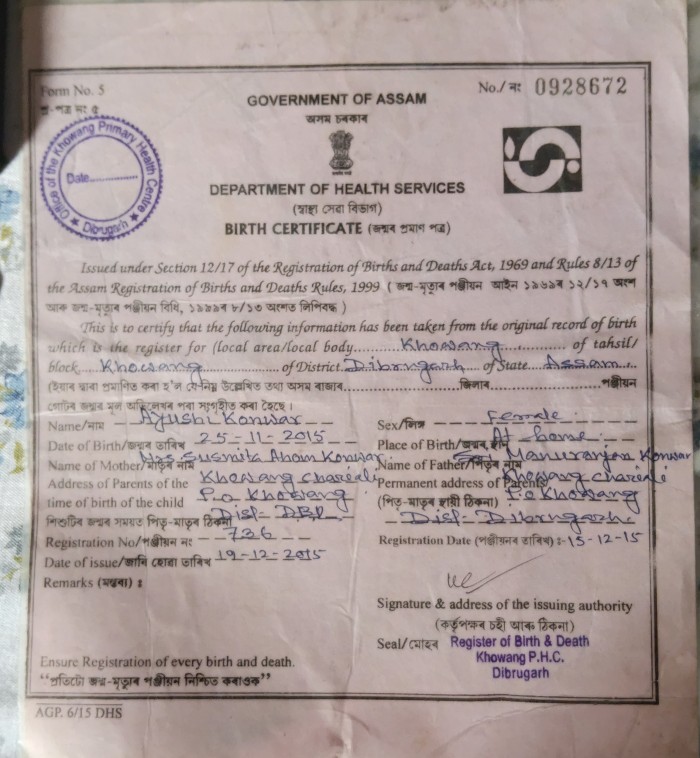 Form No. 5
প্ৰ-পত্ৰ নং ৫
No./ নং 0928672
GOVERNMENT OF ASSAM
অসম চৰকাৰ
Office of the Khowang Primary Health Centre
Date
Dibrugarh
DEPARTMENT OF HEALTH SERVICES
(স্বাস্থ্য সেৱা বিভাগ)
BIRTH CERTIFICATE (জন্মৰ প্ৰমাণ পত্ৰ)
Issued under Section 12/17 of the Registration of Births and Deaths Act, 1969 and Rules 8/13 of
the Assam Registration of Births and Deaths Rules, 1999 ( জন্ম-মৃত্যুৰ পঞ্জীয়ন আইন ১৯৬৯ৰ ১২/১৭ অংশ
আৰু জন্ম-মৃত্যুৰ পঞ্জীয়ন বিধি, ১৯৯৯ৰ ৮/১৩ অংশত লিপিবদ্ধ )
This is to certify that the following information has been taken from the original record of birth
which is the register for (local area/local body Khowang of tahsil/
block Khowang of District Dibrugarh of State Assam
(ইয়াৰ দ্বাৰা প্ৰমাণিত কৰা হ'ল যে-নিম্ন উল্লেখিত তথ্য অসম ৰাজ্যৰ জিলাৰ পঞ্জীয়ন
গোটৰ জন্মৰ মূল অভিলেখৰ পৰা সংগৃহীত কৰা হৈছে।
Name/নাম Ayushi Konwar Sex/লিঙ্গ Female
Date of Birth/জন্মৰ তাৰিখ 25-11-2015 Place of Birth/জন্মৰ স্থান At home
Name of Mother/মাতৃৰ নাম Mrs. Susmita Konwar Name of Father/পিতৃৰ নাম Manuranjan Konwar
Address of Parents of the Khowang chariali Permanent address of Parents Khowang chariali
time of birth of the child P.o Khowang (পিতৃ-মাতৃৰ স্থায়ী ঠিকনা) P.o Khowang
শিশুটিৰ জন্মৰ সময়ত পিতৃ-মাতৃৰ ঠিকনা Dist- DBR Dist- Dibrugarh
Registration No/পঞ্জীয়ন নং 736 Registration Date (পঞ্জীয়নৰ তাৰিখ) :-15-12-15
Date of issue/জাৰি হোৱা তাৰিখ 19-12-2015
Remarks (মন্তব্য) :
Signature & address of the issuing authority
(কৰ্তৃপক্ষৰ চহী আৰু ঠিকনা)
Seal/মোহৰ Register of Birth & Death
Khowang P.H.C.
Dibrugarh
Ensure Registration of every birth and death.
“প্ৰতিটো জন্ম-মৃত্যুৰ পঞ্জীয়ন নিশ্চিত কৰাওক”
AGP. 6/15 DHS